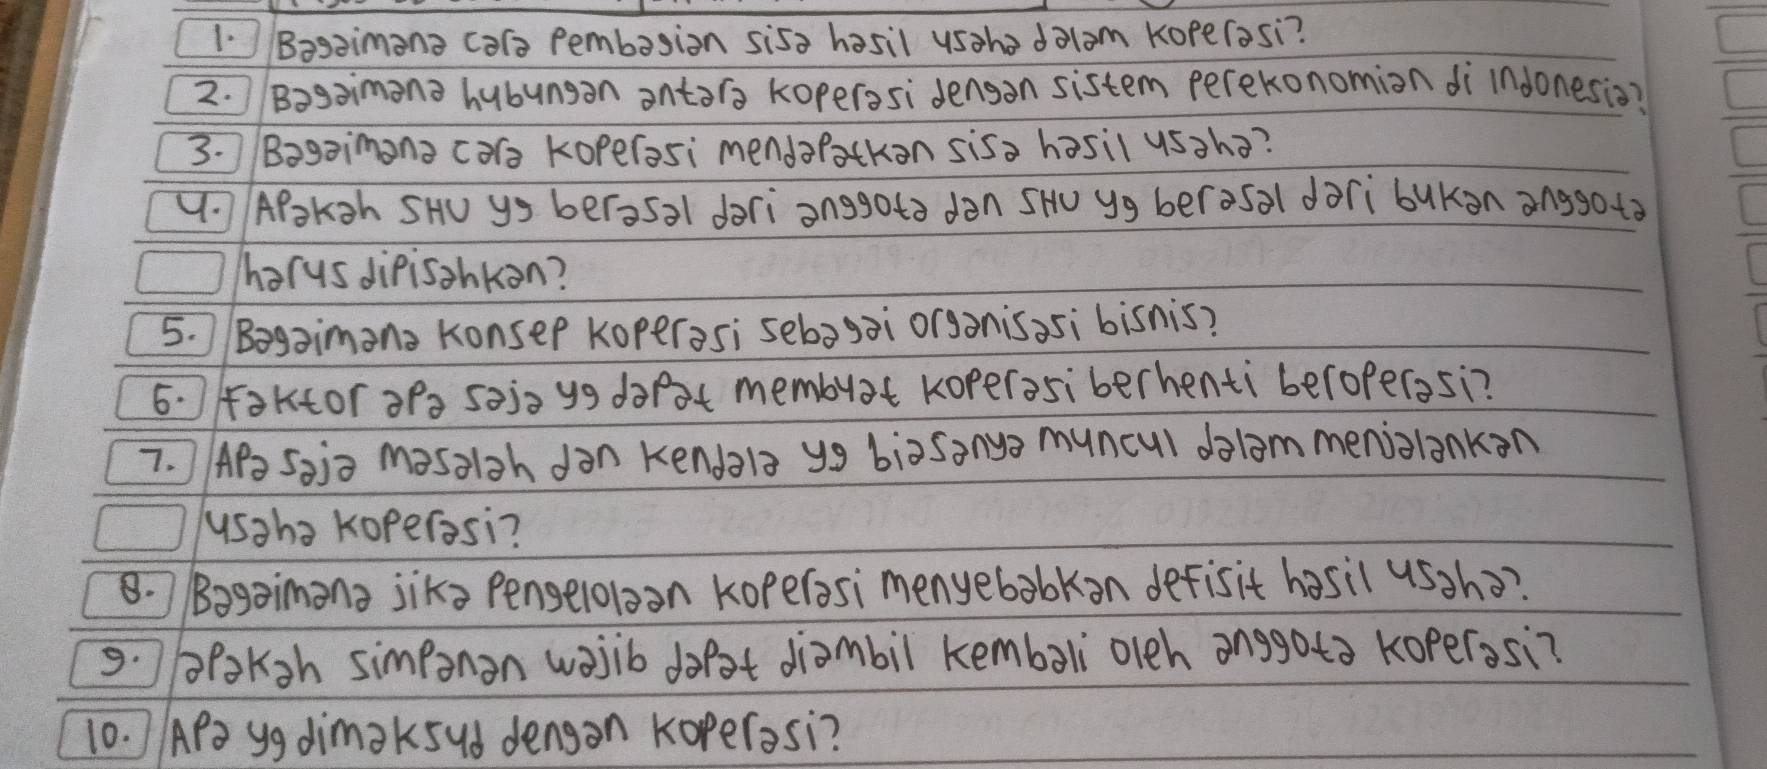 1. Bagaimana cara Pembagian sisa hasil usaha dalam koperasi?
2. Bagaimana hubungan antara koperasi dengan sistem perekonomian di Indonesia?
3. Bagaimana cara koperasi mendapatkan sisa hasil usaha?
4. Apakah SHU yg berasal dari anggota dan SHU yg berasal dari bukan anggota
harus dipisahkan?
5. Bagaimana Konsep Koperasi sebagai organisasi bisnis?
6. Faktor apa saja yg dapat membuat koperasi berhenti beroperasi?
7. Apa saja masalah dan kendala yg biasanya muncul dalam menjalankan
usaha koperasi?
8. Bagaimana jika Pengelolaan koperasi menyebabkan defisit hasil usaha?
9. apakah simpanan wajib dapat diambil kembali oleh anggota koperasi?
10. Apa yg dimaksud dengan koperasi?